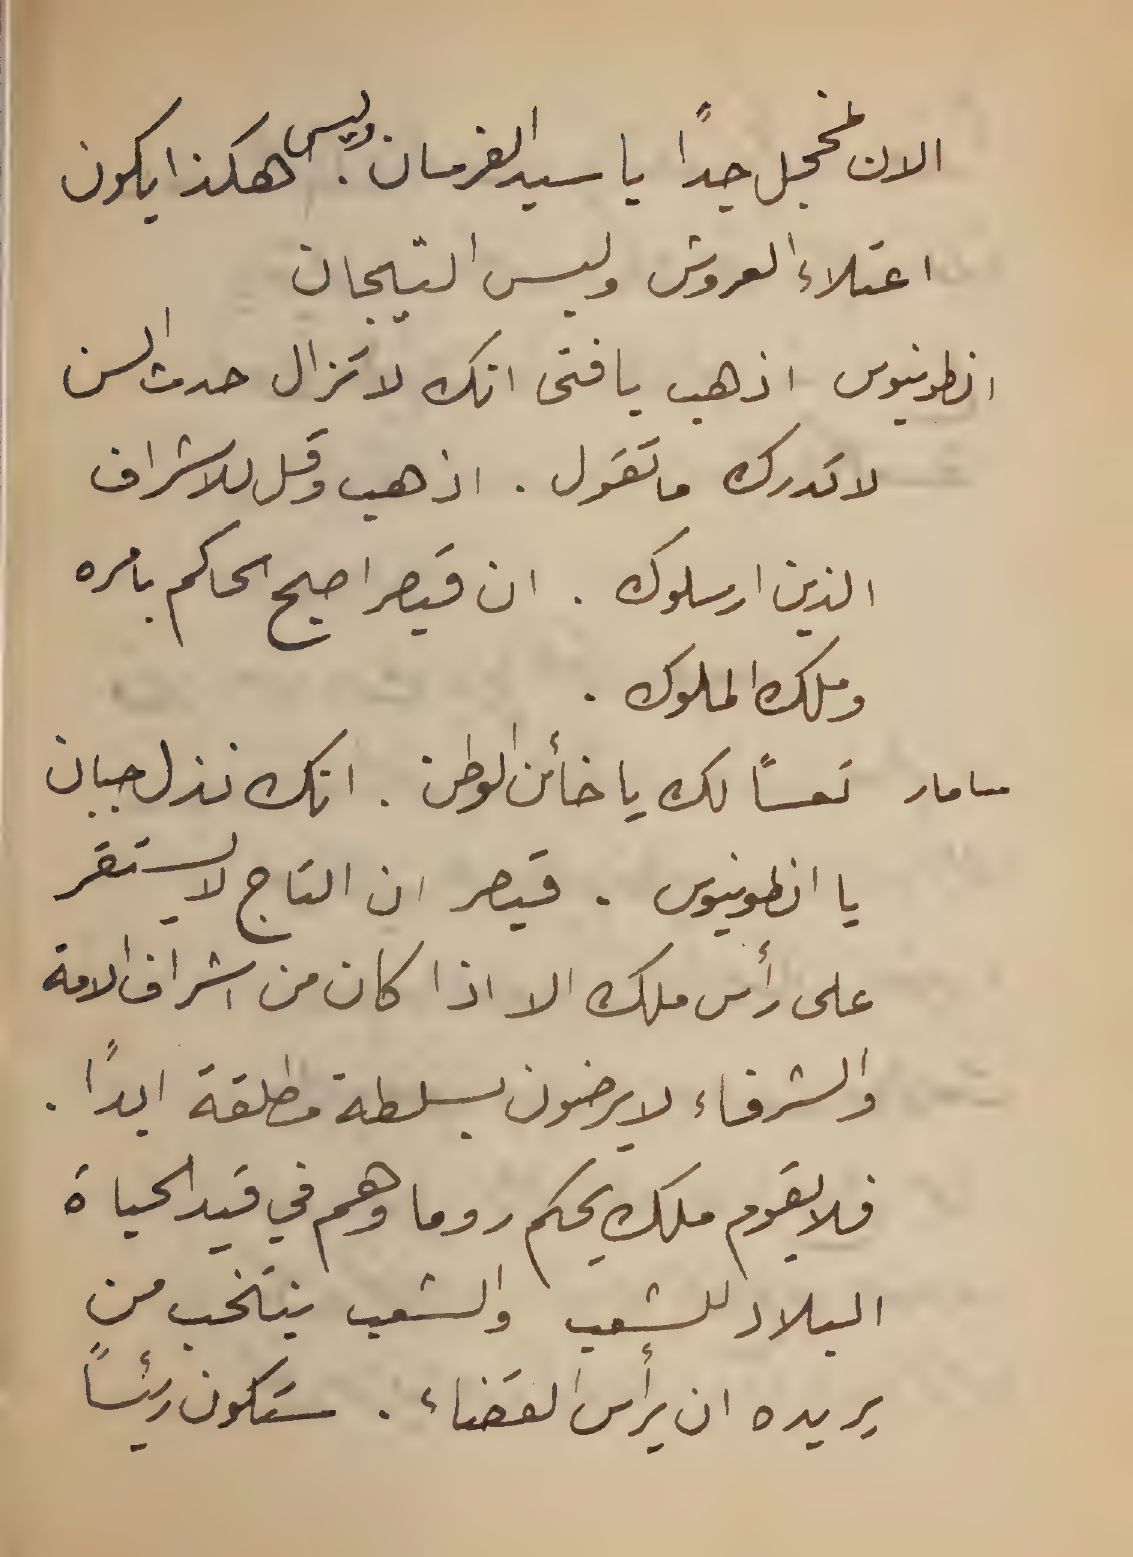 الان لمخجل جداً يا سيد الفرسان. وليس هكذا يكون
اعتلاء العروش وليس التيجان
انطونيوس اذهب يا فتى انك لا تزال حدث السن
لا تدرك ما تقول . اذهب وقل للاشراف
الذين ارسلوك . ان قيصر اصبح الحاكم بامره
وملك الملوك .
سامار تعساً لك يا خائن الوطن . انك نذل جبان
يا انطونيوس . قيصر ان التاج لا يستقر
على رأس ملك الا اذا كان من اشراف الامة
والشرفاء لا يرضون بسلطة مطلقة ابداً .
فلا يقوم ملك يحكم روما وهم في قيد الحياة
البلاد للشعب والشعب ينتخب من
يريده ان يرأس القضاء . ستكون رئيساً